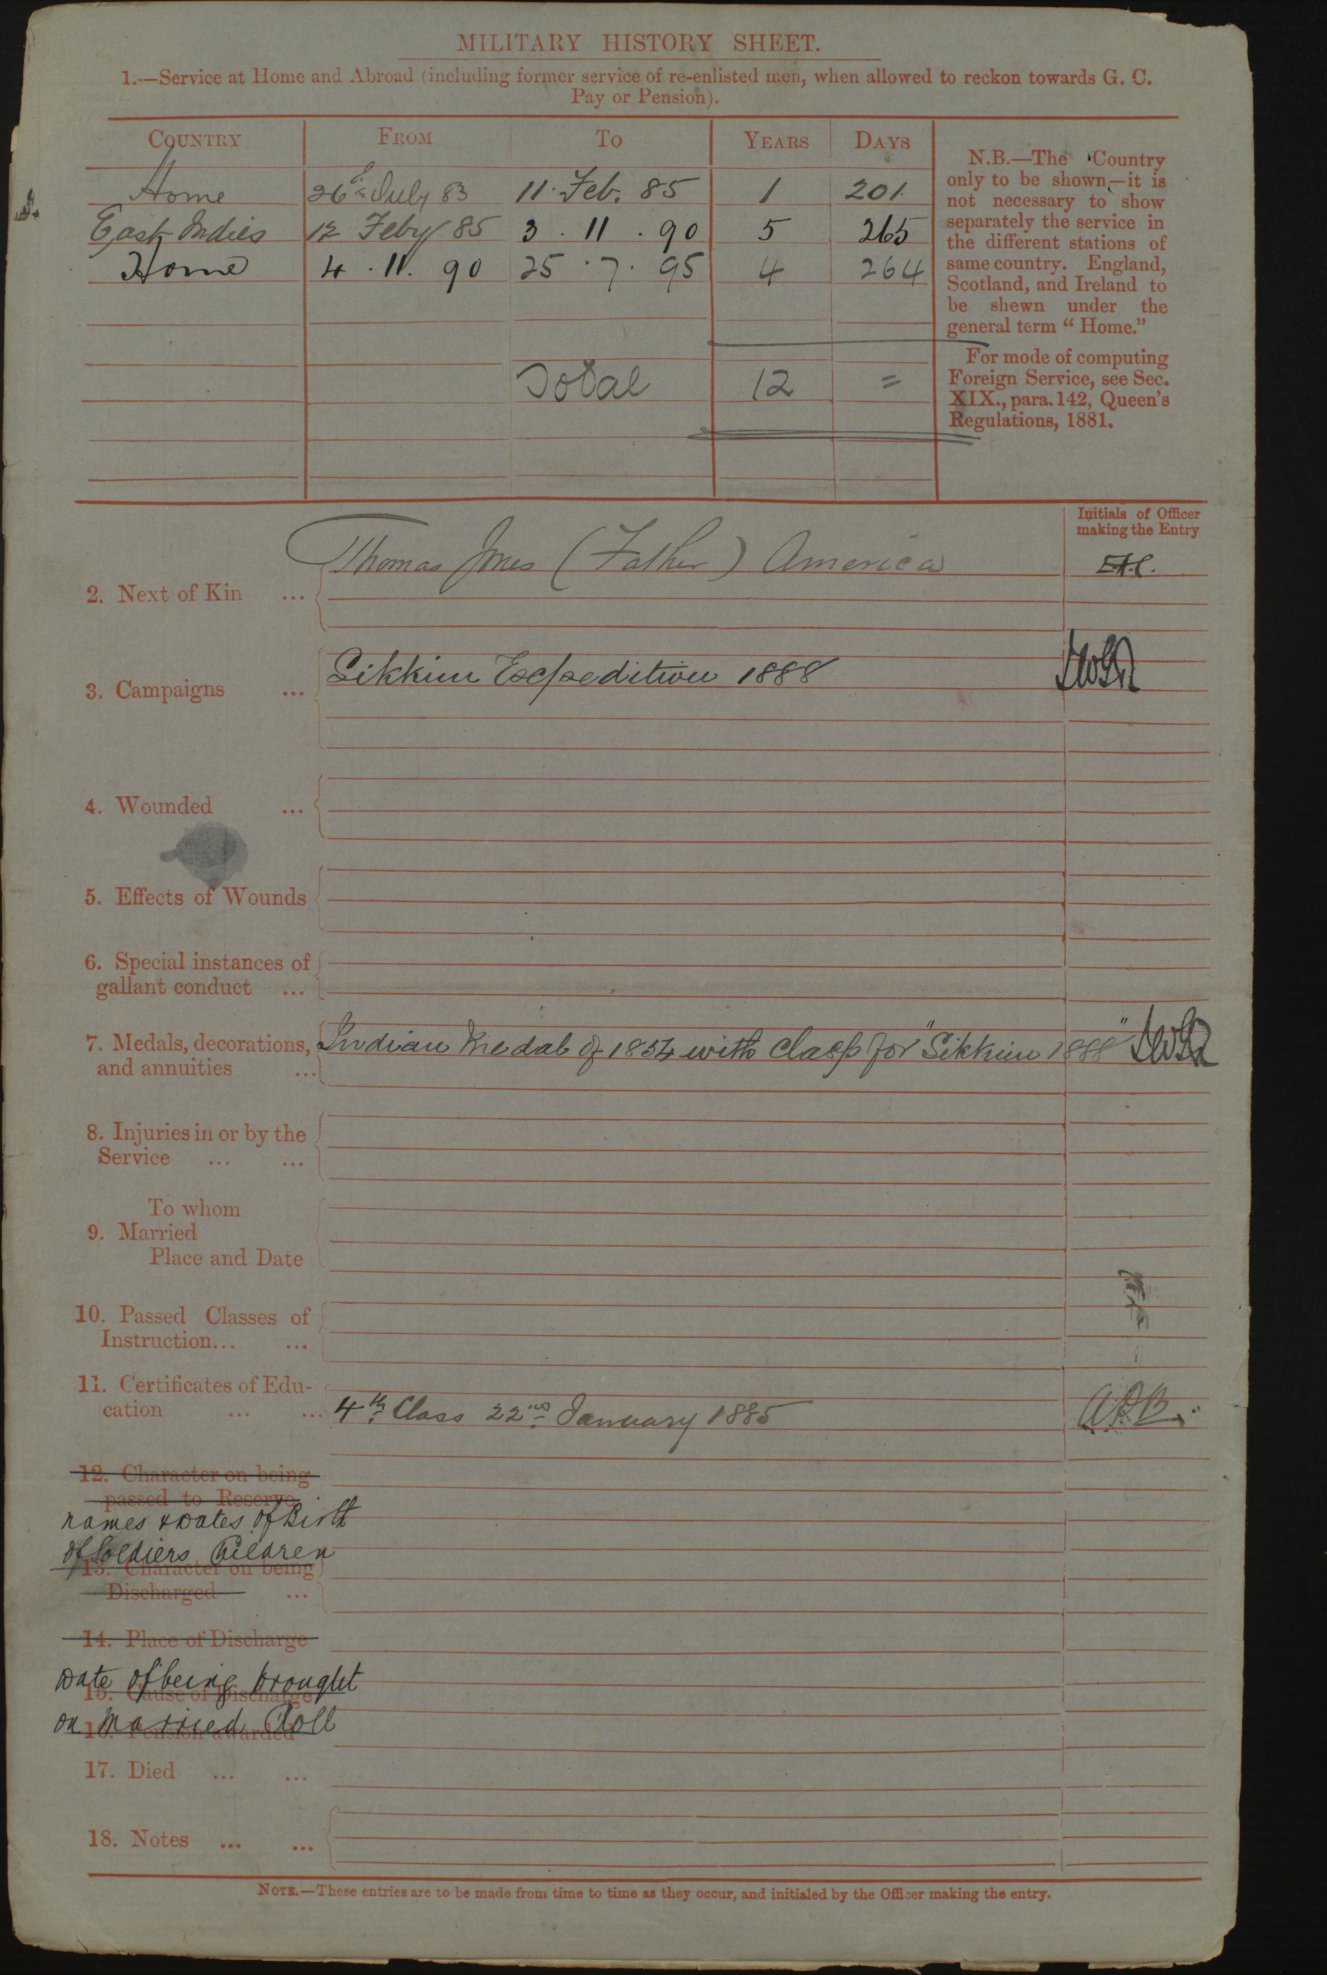 MILITARY HISTORY SHEET.
1.—Service at Home and Abroad (including former service of re-enlisted men, when allowed to reckon towards G. C.
Pay or Pension).
COUNTRY FROM TO YEARS DAYS
Home 26th July 83 11 Feb. 85 1 201
East Indies 12 Feby 85 3 . 11 . 90 5 265
Home 4 . 11 . 90 25 . 7 . 95 4 264
Total 12 =
N.B.—The Country
only to be shown—it is
not necessary to show
separately the service in
the different stations of
same country. England,
Scotland, and Ireland to
be shewn under the
general term “ Home.”
For mode of computing
Foreign Service, see Sec.
XIX., para. 142, Queen's
Regulations, 1881.
Initials of Officer
making the Entry
Thomas Jones (Father) America
2. Next of Kin ...
Sikkim Expedition 1888
3. Campaigns ...
4. Wounded ...
5. Effects of Wounds
6. Special instances of
gallant conduct ...
7. Medals, decorations, Indian Medal of 1854 with clasp for "Sikkim 1888"
and annuities ...
8. Injuries in or by the
Service ... ...
To whom
9. Married
Place and Date
10. Passed Classes of
Instruction... ...
11. Certificates of Edu-
cation ... ... 4th Class 22nd January 1885
12. Character on being
passed to Reserve
names & Dates of Birth
of Soldiers Children
13. Character on being
Discharged ...
14. Place of Discharge
Date of being brought
15. Cause of Discharge
on Married Roll
16. Pension awarded
17. Died ... ...
18. Notes ... ...
NOTE.—These entries are to be made from time to time as they occur, and initialed by the Officer making the entry.